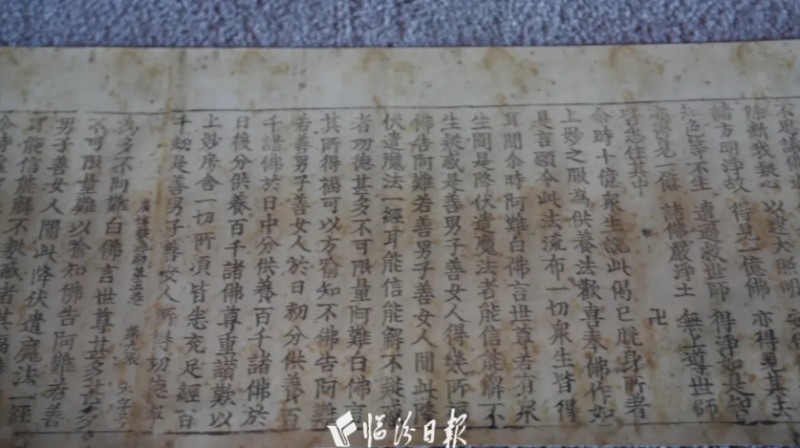 除斷我疑心 以是大照明
諸方明淨故 得見一億佛 亦得見其土
遣過救世師
見一億 諸佛嚴淨土 無上尊世師
住其中 卍
尒時十億眾生說此偈已脫身所著
上妙之服為供養法歡喜奉佛作如
是言願令此法流布一切眾生皆得
耳聞尒時阿難白佛言世尊若有眾
生聞是降伏遺魔法者能信能解不
生疑惑是善男子善女人得幾所
佛告阿難若善男子善女人聞此
伏遺魔法一經耳能信能解不疑
者功德甚多不可限量阿難白佛
其所得福可以方喻知不佛告阿難
若善男子善女人於日初分供養百
千諸佛於日中分供養百千諸佛於
日後分供養百千諸佛尊重讚歎以
上妙房舍一切所須皆悉充足經一百
千劫是善男子善女人所得功德寧
為多不阿難白佛言世尊甚多甚多
不可限量難以喻知佛告阿難若善
男子善女人聞此降伏遺魔法一經
耳能信能解不疑惑者其福
临汾日报